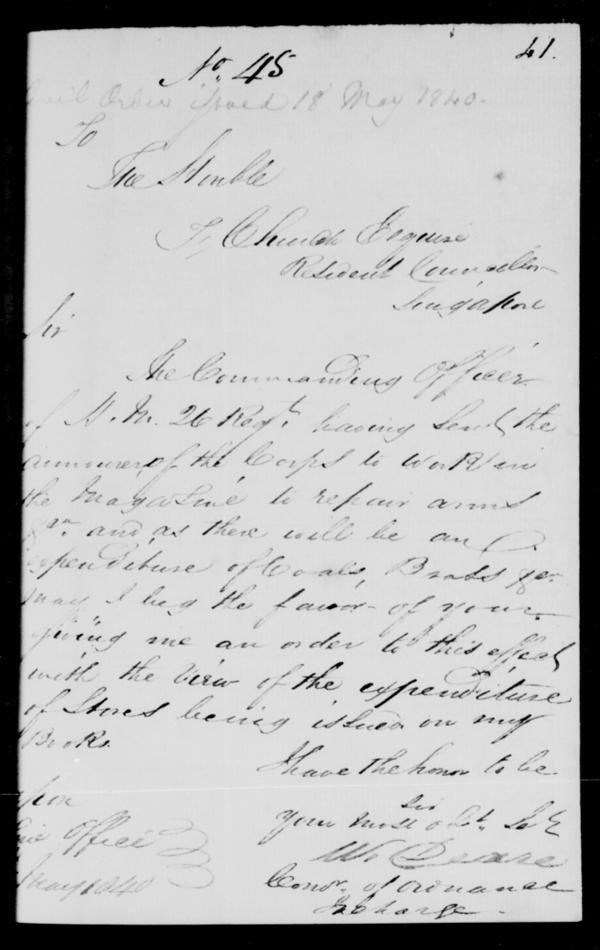 41.
No. 45
Order issued 18 May 1840.
To
The Honble
T, Church Esquire
Resident Councellor
Singapore
Sir
The Commanding Officer
of H. M. 26 Regt. having Send the
armourer of the Corps to Work in
the Magazine to repair arms
&ca. and as there will be an
expenditure of Coals, Brass &ca
may I beg the favor of your
giving me an order to this effect
with the View of the expenditure
of Stores being issued on my
Books.
I have the honor to be
Sir
Your most obt. Sert
Wm
Condr. of Ordnance
In Charge
pore
Office
May 1840